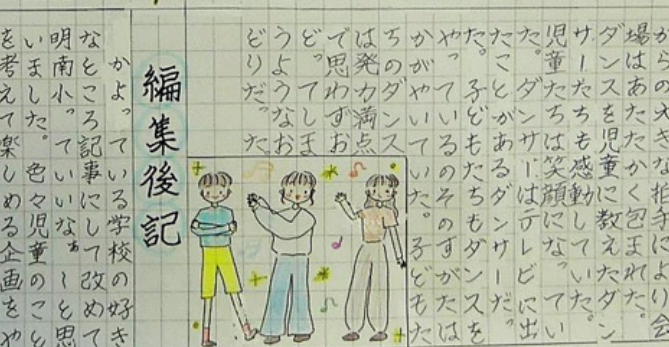 からの大きな拍手により会
場はあたたかく包まれた。
ダンスを児童に教えたダン
サーたちも感動していた。
児童たちは笑顔になってい
た。ダンサーはテレビに出
たことがあるダンサーだっ
た。子どもたちもダンスを
やっているのそのすがたは
かがやいていた。子どもた
ちのダンス
は発力満点
で思わずお
どってしま
うようなお
どりだった
編集後記
かよっている学校の好き
なところ記事にして改めて
明南小っていいなぁ〜と思
いました。色々児童のこと
を考えて楽しめる企画をや